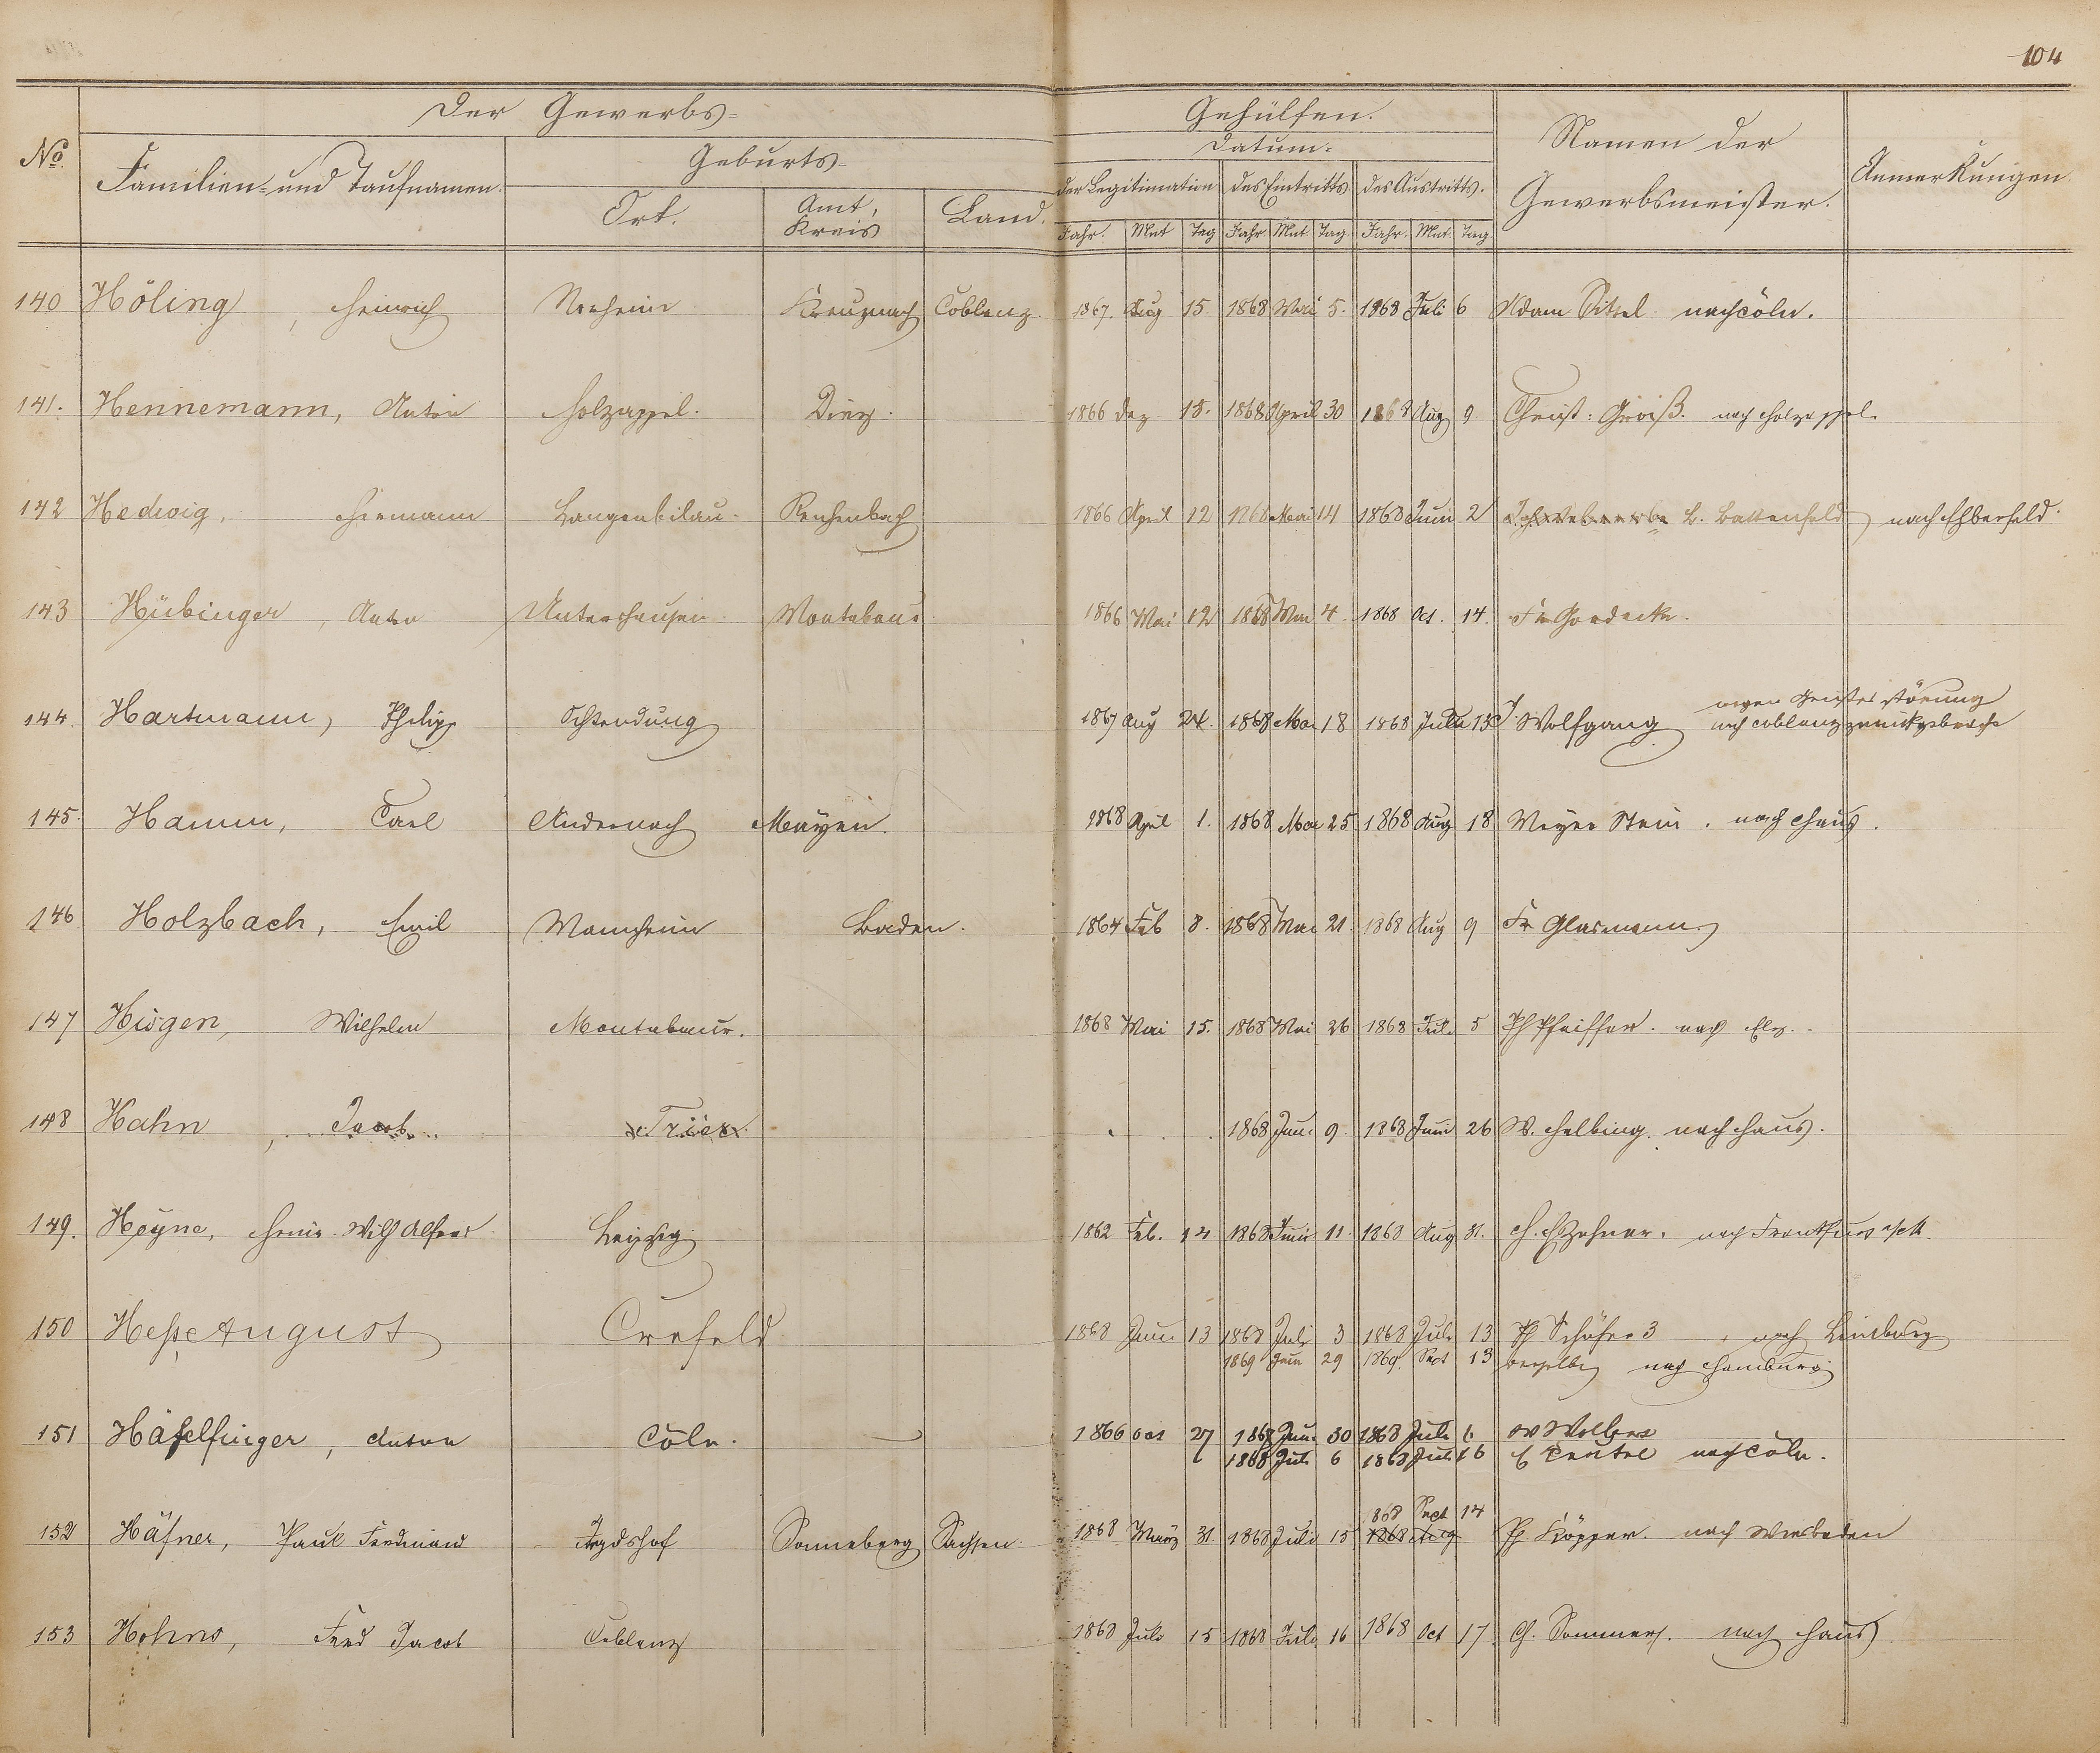 104
Der Gewerbs= Gehülfen.
No. Familien- und Taufnamen. Geburts- Datum= Namen der Gewerbsmeister. Anmerkungen.
Ort. Amt, Kreis Land. der Legitimation des Eintritts des Austritts.
Jahr. Mnt Tag Jahr Mnt Tag. Jahr. Mnt. Tag.
140 Höling, Heinrich Kreuznach Coblenz. 1867. Aug 15. 1868 Mai 5. 1868 Juli 6 Adam nach Cöln.
141. Hennemann, Anton Holzappel. Diez. 1866 Dez 18. 1868 April 30 1868 Aug 9. Christ: nach Holzappel.
142 Hedwig, Hermann Langenbilau. Reichenbach 1866 April 12 1868 Mai 14 1868 Juni 2 L. Battenfeld nach Elberfeld.
143 Hübinger, Anton Untershausen Montabaur. 1866 Mai 12 1868 Mai 4. 1868 Oct. 14. Fr
144. Hartmann, Philipp Ochtendung 1867 Aug 24. 1868 Mai 18 1868 Juli 13 J. Wolfgang wegen Geistesstörung
nach Coblenz zurückgebracht
145. Hamm, Carl Andernach Mayen. 1868 April 1. 1868 Mai 25 1868 Aug 18 Meyer Stein. nach Haus.
146 Holzbach, Emil Mannheim Baden. 1864 Feb 8. 1868 Mai 21. 1868 Aug 9 Fr Glasmann.
147 Hisgen, Wilhelm Montabaur. 1868 Mai 15. 1868 Mai 26 1868 Juli 5 Ph Pfeiffer. nach Elz.
148 Hahn, Jacob Trier. 1868 Juni 9. 1868 Juni 26 W. Helbing. nach Haus.
149. Heyne, Heinr. Wilh Alfred Leipzig 1862 Feb. 14 1868 Juni 11. 1868 Aug 31. nach Frankfurt a/M.
150 Heße August Crefeld 1868 Juni 13 1868 Juli 3 1868 Juli 13 Ph Schäfer 3, nach Limburg
1869 Juni 29 1869. Sept 13 derselbe nach Hamburg
151 Häfelfinger, Anton Cöln. 1866 Oct 27 1868 Juni 30 1868 Juli 6 W Wolfers
1868 Juli 6 1868 Juli 16 nach Cöln.
868 Sept 14
152 Häfner, Paul Ferdinand Jagdshof Sonneberg Sachsen. 1868 März 31. 1868 Juli 15 1868 Aug Ph. Köpper. nach Wiesbaden
153 Hohns, Ferd Jacob Coblenz 1868 Juli 15 1868 Juli 16 1868 Oct 17. Ch. Sommer. nach Haus